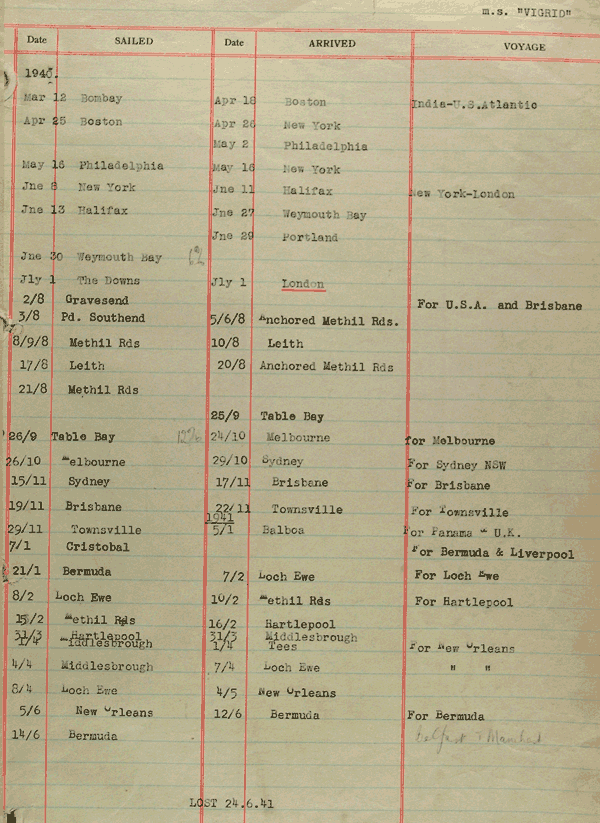 m.s. "VIGRID"
Date SAILED Date ARRIVED VOYAGE
1940.
Mar 12 Bombay Apr 18 Boston India-U.S.Atlantic
Apr 25 Boston Apr 26 New York
May 2 Philadelphia
May 16 Philadelphia May 16 New York
Jne 8 New York Jne 11 Halifax New York-London
Jne 13 Halifax Jne 27 Weymouth Bay
Jne 29 Portland
Jne 30 Weymouth Bay
Jly 1 The Downs Jly 1 London
2/8 Gravesend For U.S.A. and Brisbane
3/8 Pd. Southend 5/6/8 Anchored Methil Rds.
8/9/8 Methil Rds 10/8 Leith
17/8 Leith 20/8 Anchored Methil Rds
21/8 Methil Rds
25/9 Table Bay
26/9 Table Bay 24/10 Melbourne for Melbourne
26/10 Melbourne 29/10 Sydney For Sydney NSW
15/11 Sydney 17/11 Brisbane For Brisbane
19/11 Brisbane 22/11 Townsville For Townsville
1941
29/11 Townsville 5/1 Balboa For Panama " U.K.
7/1 Cristobal For Bermuda & Liverpool
21/1 Bermuda 7/2 Loch Ewe For Loch Ewe
8/2 Loch Ewe 10/2 Methil Rds For Hartlepool
15/2 Methil Rds 16/2 Hartlepool
31/3 Hartlepool 31/3 Middlesbrough
1/4 Middlesbrough 1/4 Tees For New Orleans
4/4 Middlesbrough 7/4 Loch Ewe " "
8/4 Loch Ewe 4/5 New Orleans
5/6 New Orleans 12/6 Bermuda For Bermuda
14/6 Bermuda Belfast
LOST 24.6.41